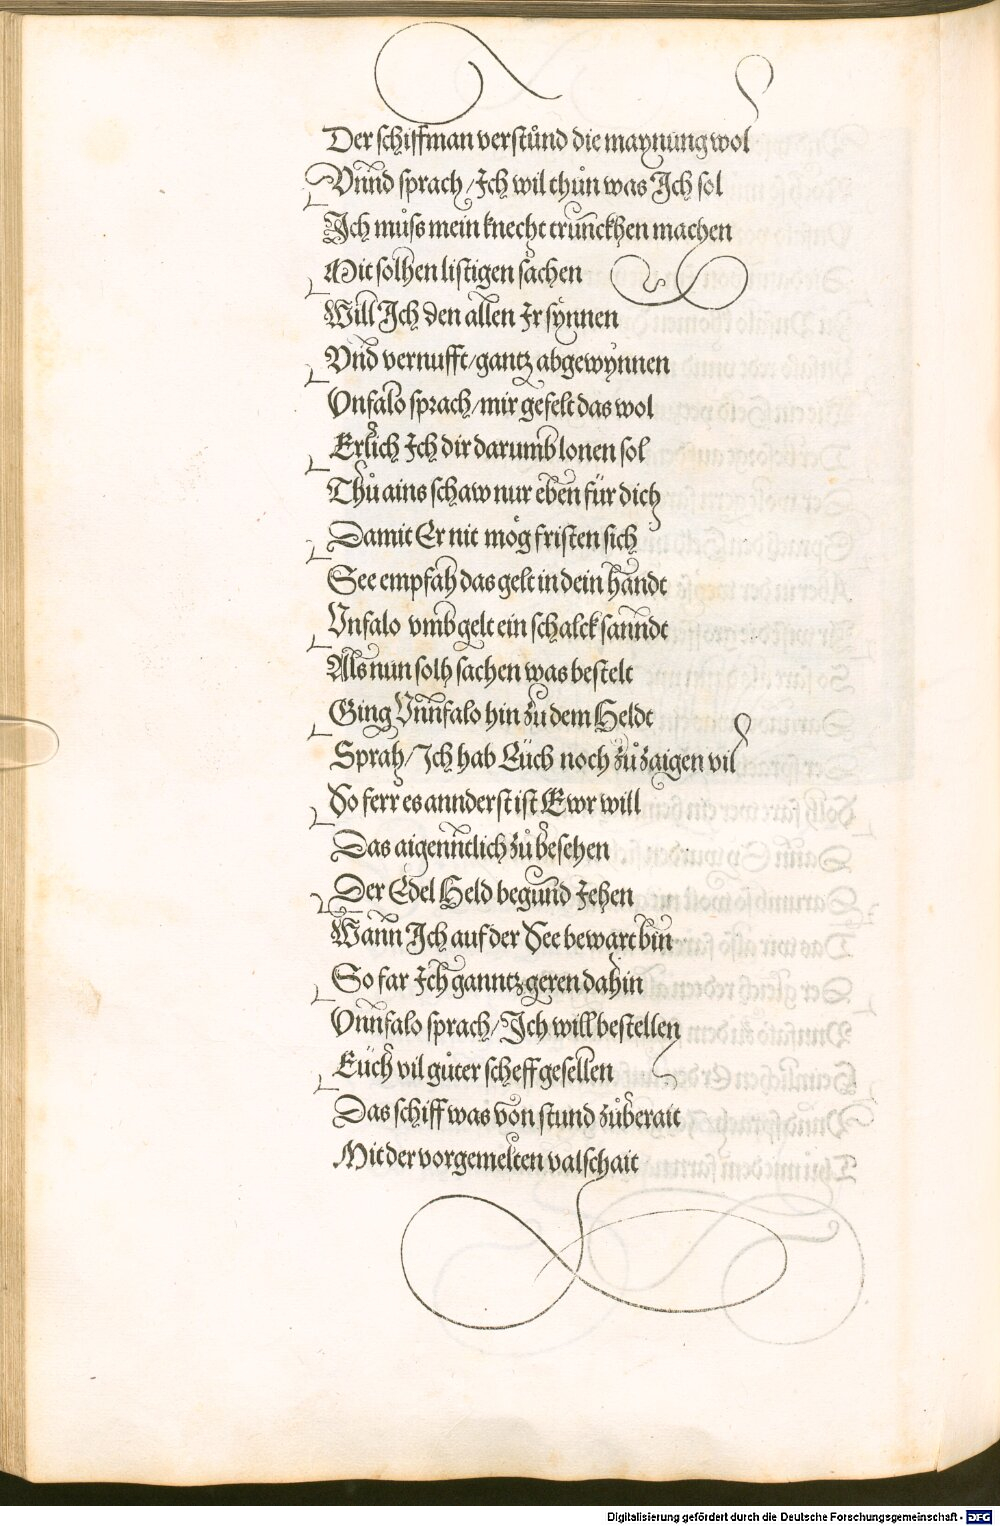 Der schiffman verstůnd die maynung wol
Vnnd sprach/Ich wil thůn was Ich sol
Ich můſs mein knecht trunckhen machen
Mit solhen listigen sachen
Will Ich den allen Ir synnen
Vnd vernufft/gantz abgewynnen
Vnfalo sprach/mir gefelt das wol
Erlich Ich dir darumb lonen sol
Thů ains schaw nur eben für dich
Damit Er nit mög fristen sich
See empfah das gelt in dein handt
Vnfalo vmb gelt ein schalck sanndt
Als nun solh sachen was bestelt
Ging Vnnfalo hin zu dem Heldt
Sprah/Ich hab Eüch noch zů zaigen vil
So ferr es annderst ist Ewr will
Das aigenntlich zů besehen
Der Edel Held begund Jehen
Wann Ich auf der See bewart bin
So far Ich ganntz geren dahin
Vnnfalo sprach/Ich will bestellen
Eüch vil gůter scheff gesellen
Das schiff was von stund zůberait
Mit der vorgemelten valschait
Digitalisierung gefördert durch die Deutsche Forschungsgemeinschaft - DFG